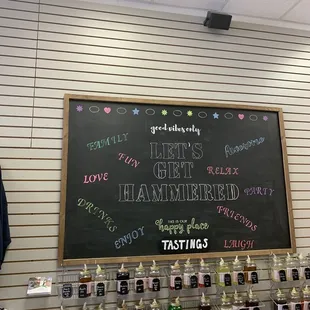 good vibes only
FAMILY
LET'S
Awesome
FUN
GET
RELAX
LOVE
HAMMERED
PARTY
DRINKS
THIS IS OUR
happy place
FRIENDS
ENJOY
TASTINGS
LAUGH